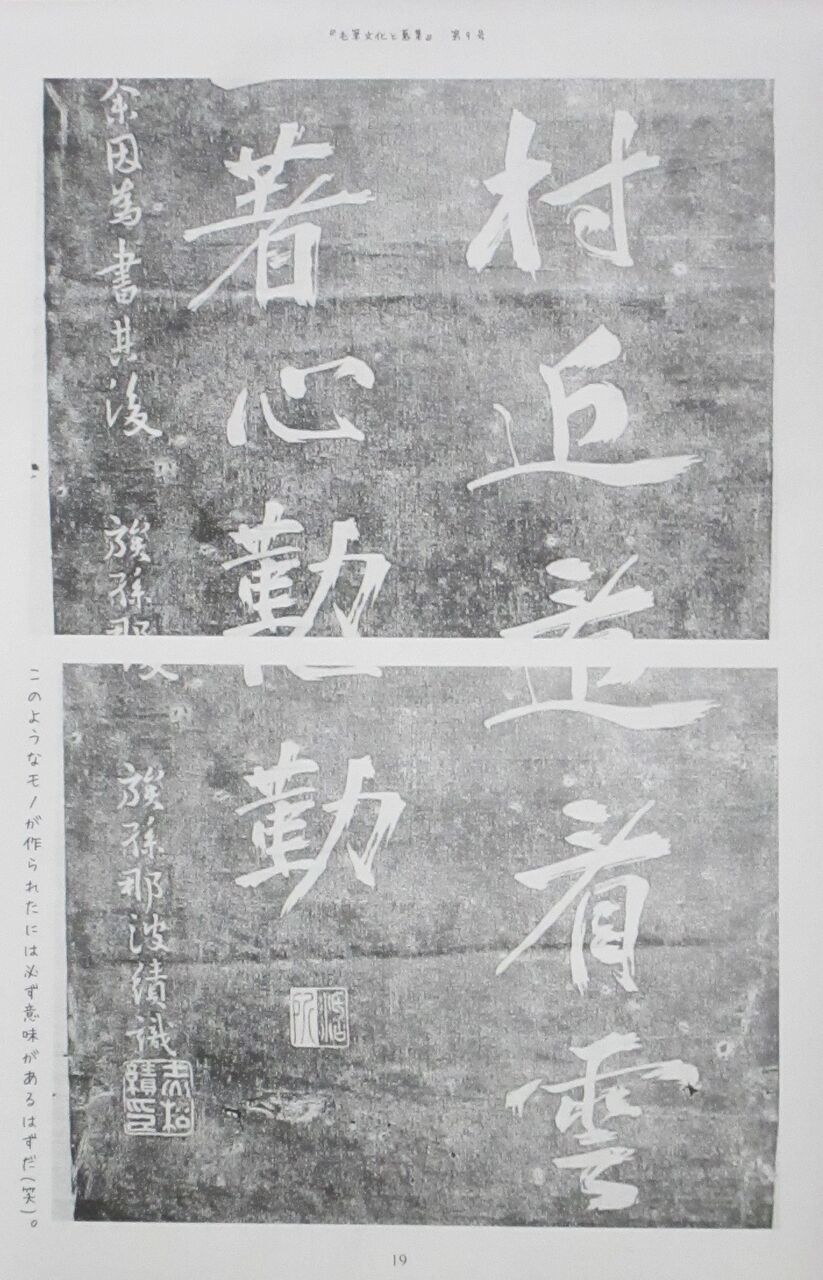 『毛筆文化と蒐集』 第9号
村近
著心
余因為書其後 族孫
看雲
勤
族孫那波績識
赤松
績印
このようなモノが作られたには必ず意味があるはずだ(笑)。
19